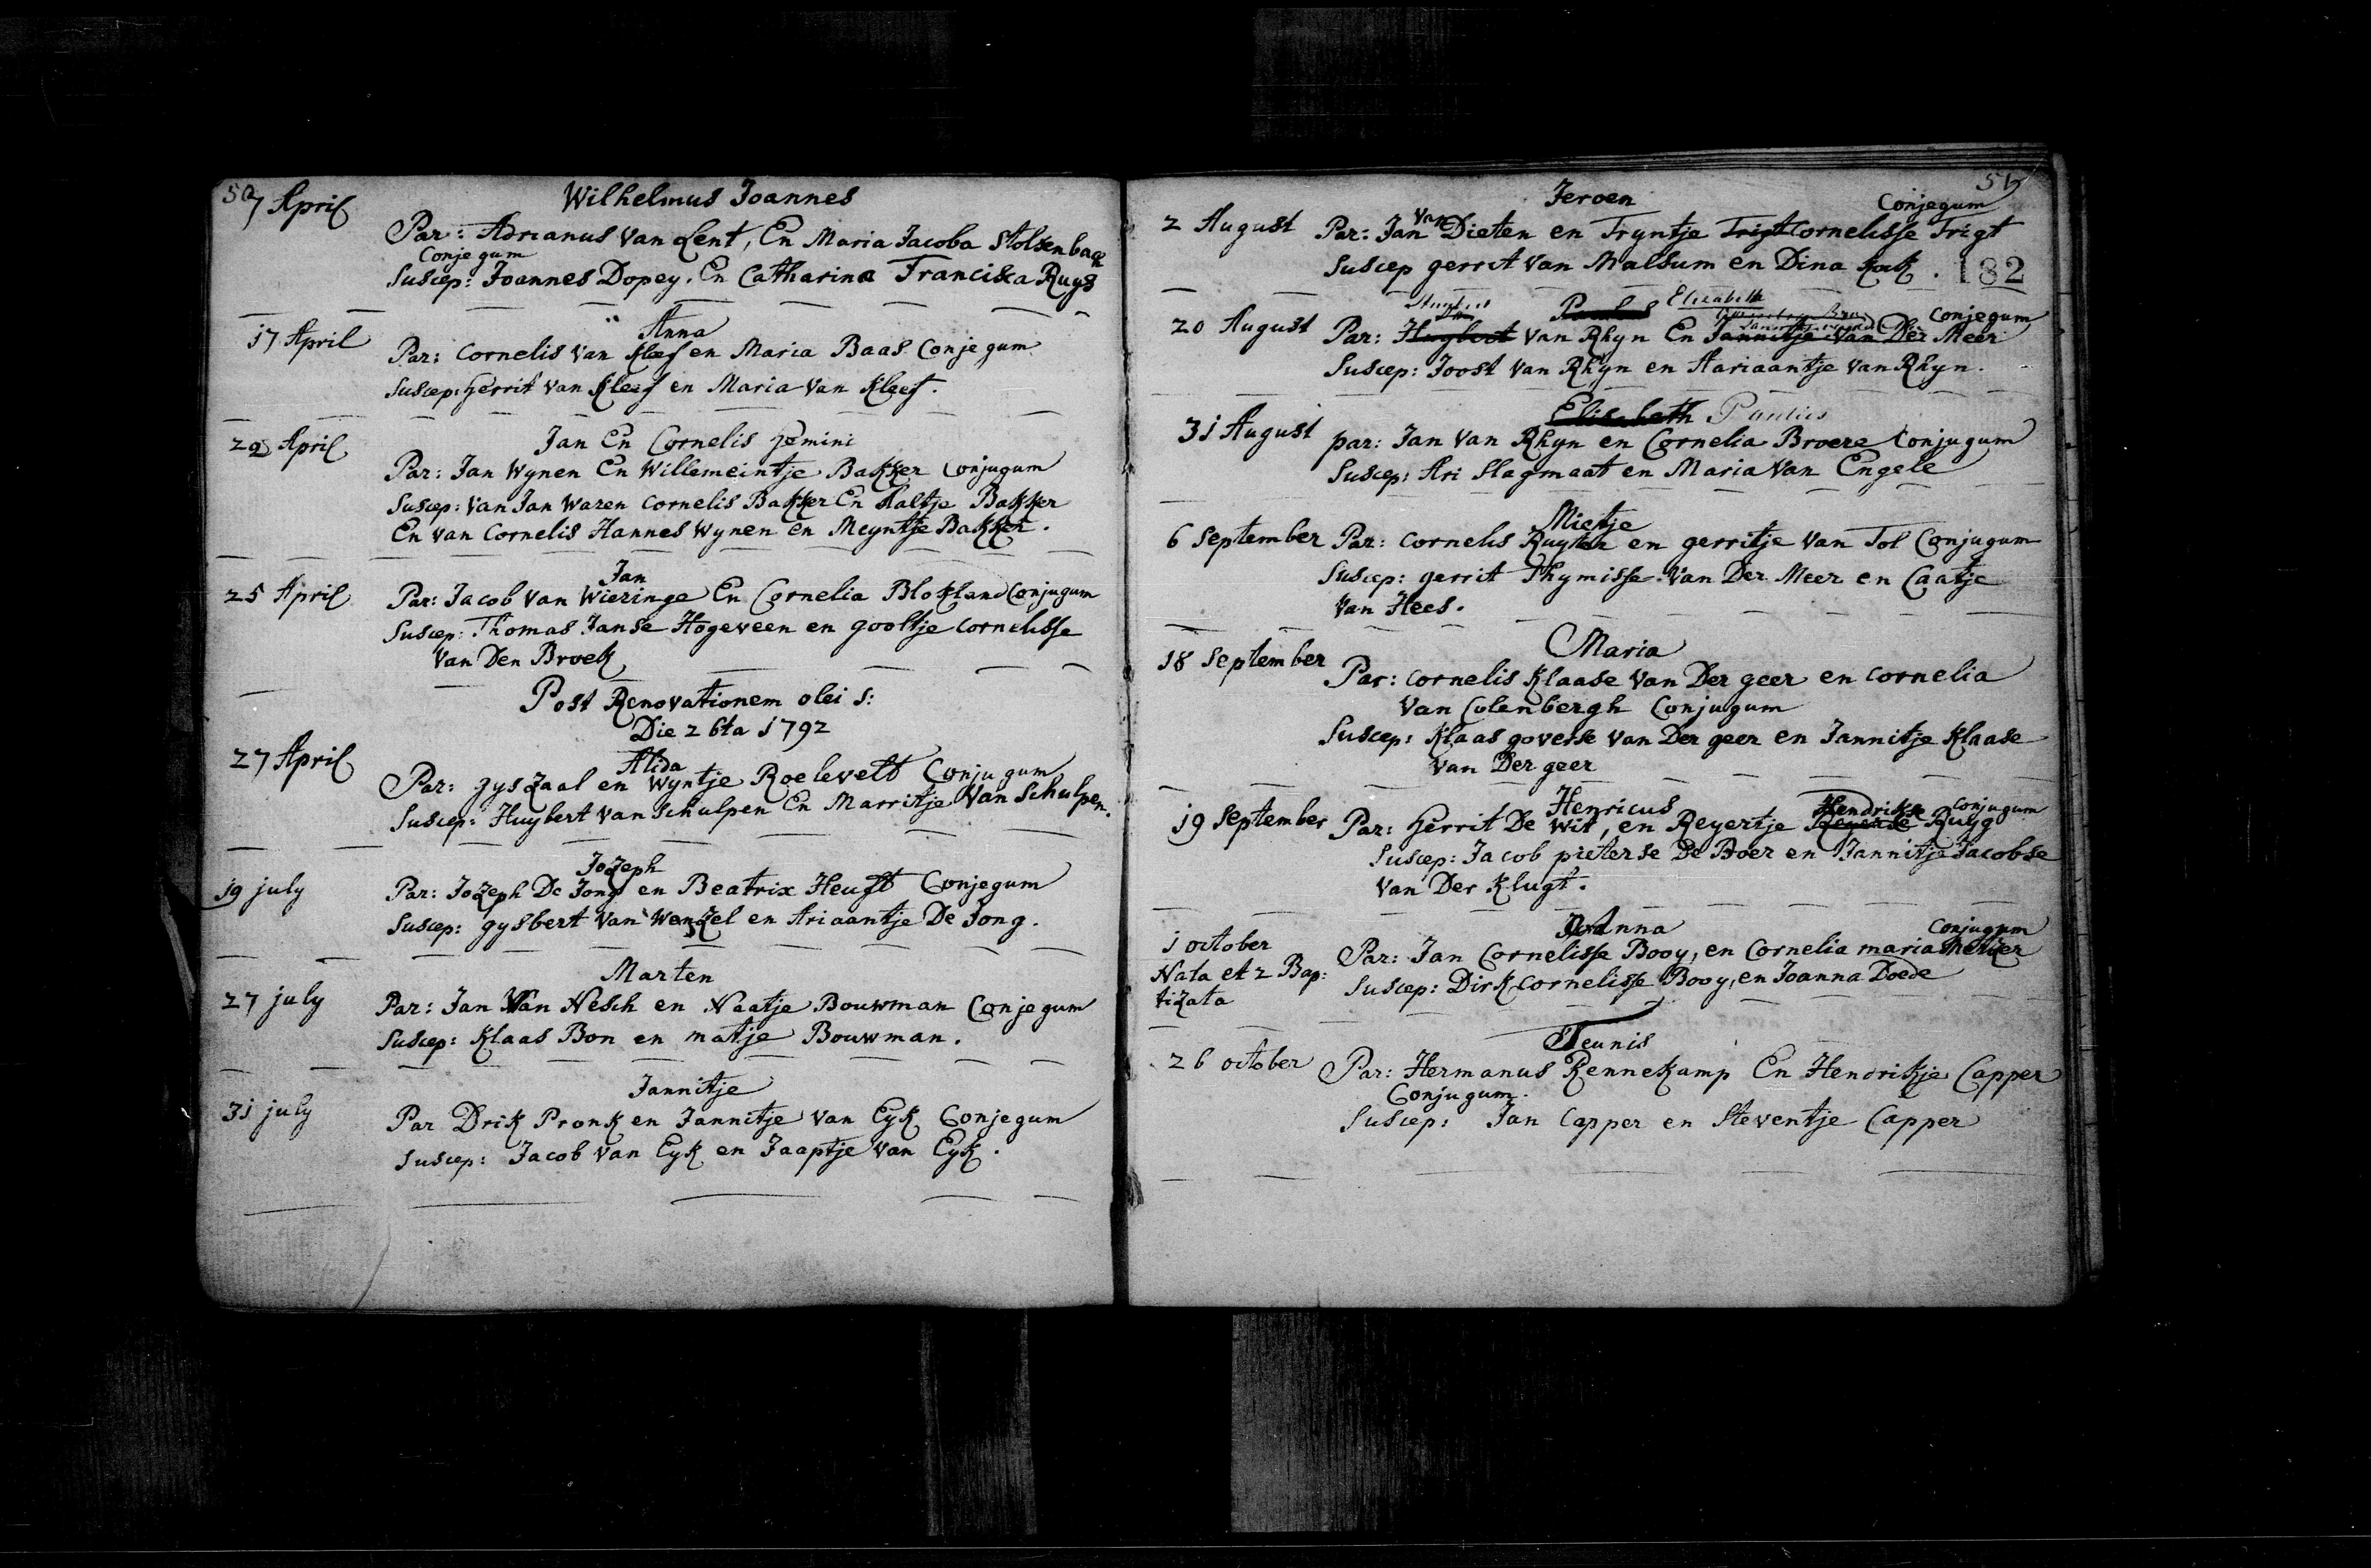 50
7 April Wilhelmus Joannes
Par: Adrianus Van Lent, En Maria Jacoba Stolsenbach
Conjegum
Suscep: Joannes Dopey. En Catharina Francisca Ruys
17 April Anna
Par: Cornelis Van Kleef en Maria Baas Conjegum
Suscep: Gerrit Van Kleef en Maria Van Kleef.
22 April Jan En Cornelis Gemini
Par: Jan Wynen En Willemeintje Bakker Conjugum
Suscep: Van Jan Waren Cornelis Bakker En Aaltje Bakker
En Van Cornelis Hannes Wynen en Meyntje Bakker.
25 April Jan
Par: Jacob Van Wieringe En Cornelia Blokland Conjugum
Suscep: Thomas Janse Hogeveen en gooltje Cornelisse
Van Den Broek
Post Renovationem olei s:
Die 26ta 1792
27 April Alida
Par: gys Zaal en Wyntje Roelevelt Conjugum
Suscep: Huybert Van Schulpen En Marritje Van Schulpen.
19 july Jozeph
Par: Jozeph De Jong en Beatrix Heugt Conjegum
Suscep: gysbert Van Wenzel en Ariaantje De Jong.
27 july Marten
Par: Jan Van Nesch en Naatje Bouwman Conjegum
Suscep: Klaas Bon en matje Bouwman.
31 july Jannitje
Par Drik Pronk en Jannitje Van Eyk Conjegum
Suscep: Jacob Van Eyk en Jaaptje Van Eyk.
51
2 August Jeroen Conjegum
Par: Jan Van Dieten en Tryntje Trigt Cornelisse Trigt
Suscep gerrit Van Malsum en Dina Kok. 182
20 August Paulus Elisabeth Conjegum
Par: Huybert Van Rhyn En Jannitje Van Der Meer
Suscep: Joost Van Rhyn en Aariaantje Van Rhyn.
31 August Elisabeth Paulus
par: Jan Van Rhyn en Cornelia Broere Conjugum
Suscep: Ari Slagmaat en Maria Van Engele
6 September Mietje
Par: Cornelis Ruyter en gerritje Van Tol Conjugum
Suscep: gerrit Thymisse Van Der Meer en Caatje
Van Hees.
18 September Maria
Par: Cornelis Klaase Van Der geer en Cornelia
Van Colenbergh Conjugum
Suscep: Klaas goverse Van Der geer en Jannitje Klaase
Van Der geer
19 September Henricus Hendrikse Conjugum
Par: Gerrit De Wit, en Reyertje Reyerse Ruyg
Suscep: Jacob pieterse De Boer en Jannitje Jacobse
Van Der Klugt.
1 october Anna Conjugum
Nata et 2 Bap: Par: Jan Cornelisse Booy, en Cornelia maria
tizata Suscep: Dirk Cornelisse Booy, en Joanna Doede
26 october Teunis
Par: Hermanus Rennekamp En Hendrikje Capper
Conjugum.
Suscep: Jan Capper en Steventje Capper